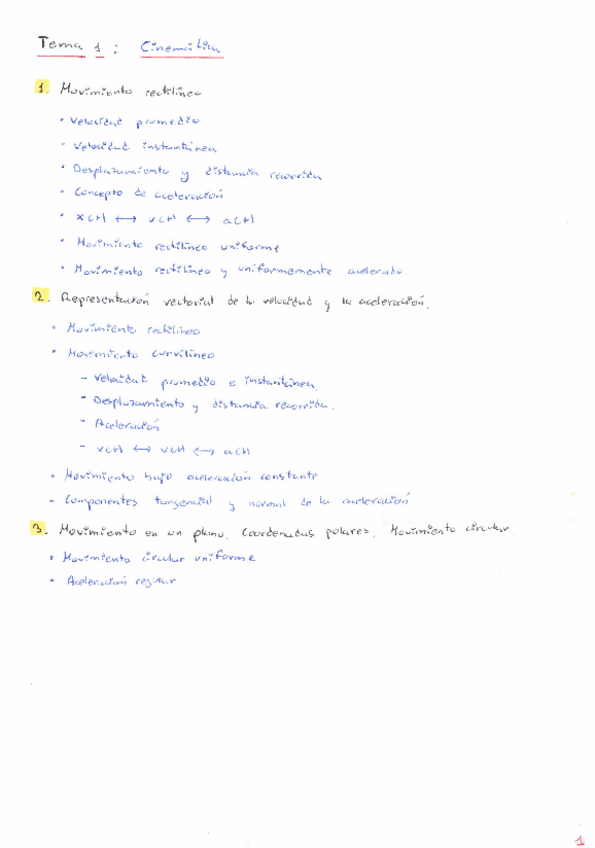 Tema 1 : Cinemática
1. Movimiento rectilíneo
• Velocidad promedio
• Velocidad instantánea
• Desplazamiento y distancia recorrida
• Concepto de aceleración
• x(t) ↔ v(t) ↔ a(t)
• Movimiento rectilíneo uniforme
• Movimiento rectilíneo y uniformemente acelerado.
2. Representación vectorial de la velocidad y la aceleración.
• Movimiento rectilíneo
• Movimiento curvilíneo
- Velocidad promedio e instantánea.
- Desplazamiento y distancia recorrida.
- Aceleración
- x(t) ↔ v(t) ↔ a(t)
• Movimiento bajo aceleración constante
- Componentes tangencial y normal de la aceleración
3. Movimiento en un plano. Coordenadas polares. Movimiento circular
• Movimiento circular uniforme
• Aceleración
1